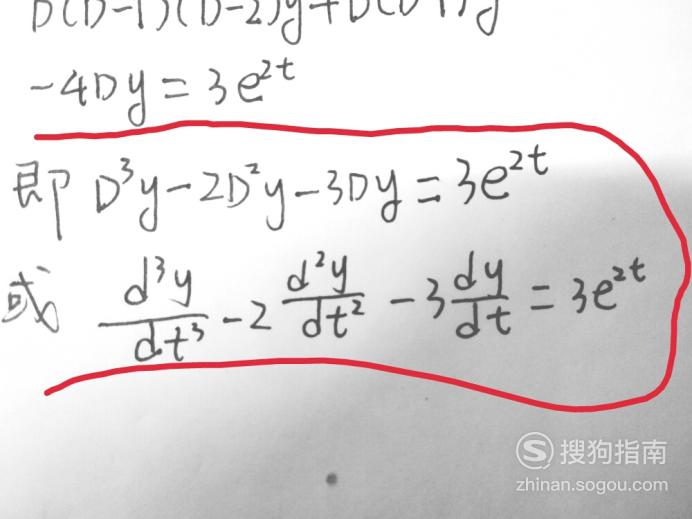 D(D-1)(D-2)y+D(D-1)y
-4Dy=3e^{2t}
即 D³y-2D²y-3Dy=3e^{2t}
或 \frac{d³y}{dt³}-2\frac{d²y}{dt²}-3\frac{dy}{dt}=3e^{2t}
S 搜狗指南
zhinan.sogou.com